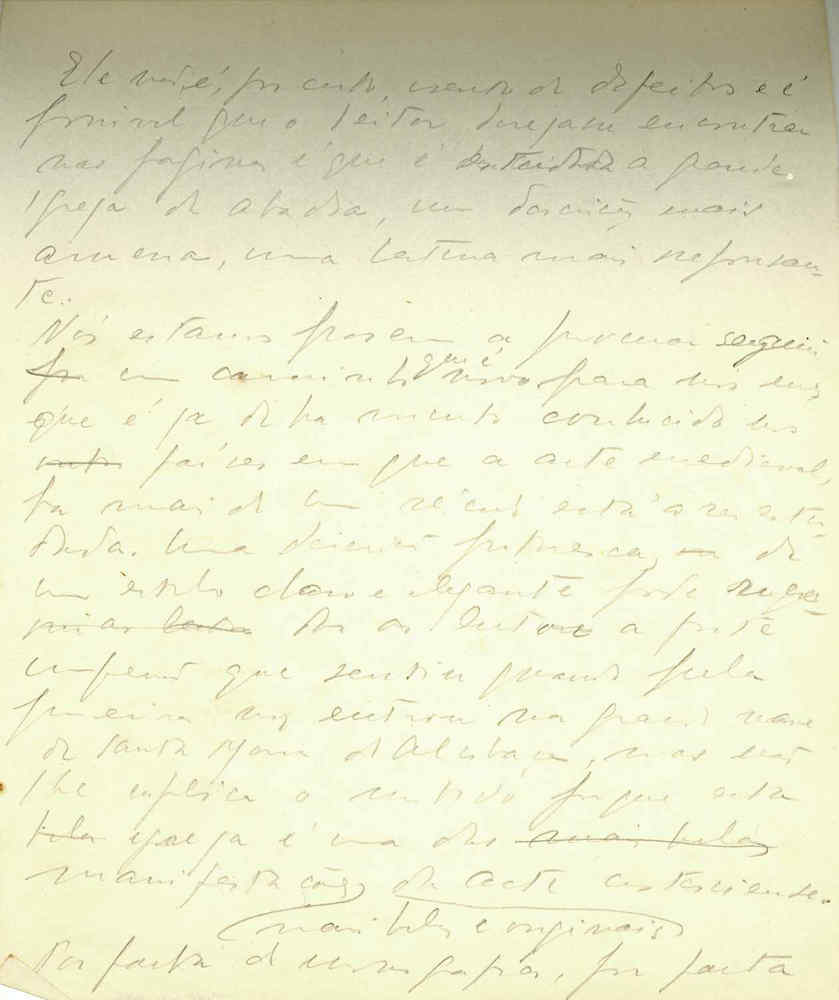 Ele não é, por certo, isento de defeitos e é
possivel que o leitor desejasse encontrar
nas paginas em que é estudada a grande
Igreja da abadia, uma descrição mais
amena, uma leitura mais repousan-
te.
Nós estamos porem a procurar seguir
por um caminho que é novo para nós em-
que é já de ha muito conhecido nos
paises em que a arte medieval,
ha mais de um seculo está a ser estu-
dada. Uma descrição pitoresca, de
um estilo claro e elegante pode
dar ao leitor a forte
impressão que sentiu quando pela
primeira vez entrou na grande nave
de Santa Maria d'Alcobaça, mas não
lhe explica o motivo porque esta
bela igreja é uma das mais belas
manifestações da arte cisterciense.
mais belas e originais
Por falta de monografias, por falta